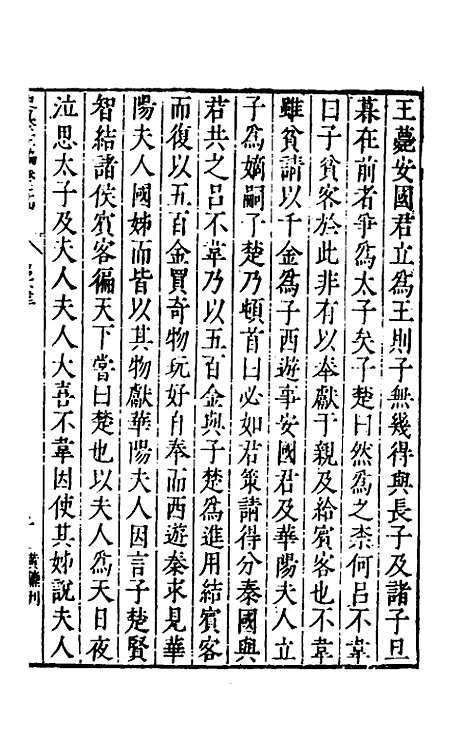 王薨安國君立爲王則子無幾得與長子及諸子旦
暮在前者爭爲太子矣子楚曰然爲之柰何呂不韋
曰子貧客於此非有以奉獻于親及給賓客也不韋
雖貧請以千金爲子西遊事安國君及華陽夫人立
子爲嫡嗣子楚乃頓首曰必如君策請得分秦國與
君共之呂不韋乃以五百金與子楚爲進用結賓客
而復以五百金買奇物玩好自奉而西遊秦求見華
陽夫人國姊而皆以其物獻華陽夫人因言子楚賢
智結諸侯賓客徧天下嘗曰楚也以夫人爲天日夜
泣思太子及夫人夫人大喜不韋因使其姊說夫人